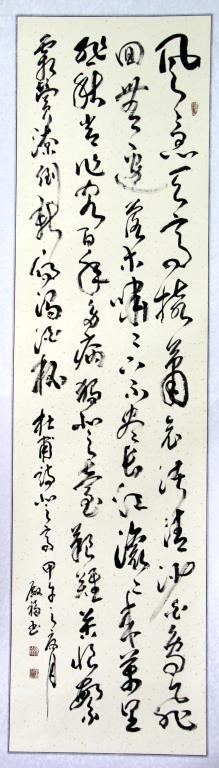 風急天高猿蕭哀渚清沙白鳥飛
回無邊落木嘯〻下不盡長江滾〻來萬里
悲秋常作客百年多病獨登臺艱難苦恨繁
霜鬢潦倒新停濁酒杯 杜甫詩登高 甲午之月
書